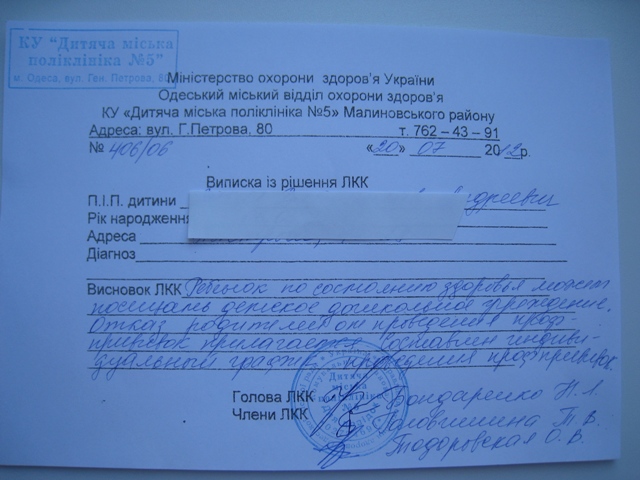 КУ "Дитяча міська
поліклініка №5"
м. Одеса, вул. Ген. Петрова, 80
Міністерство охорони здоров'я України
Одеський міський відділ охорони здоров'я
КУ «Дитяча міська поліклініка №5» Малиновського району
Адреса: вул. Г.Петрова, 80 т. 762 – 43 – 91
№ 406/06 «20» 07 2012р.
Виписка із рішення ЛКК
П.І.П. дитини
Рік народження
Адреса
Діагноз
Висновок ЛКК Ребенок по состоянию здоровья может
посещать детское дошкольное учреждение.
Отказ родителей от проведения проф-
прививок прилагается. Составлен индиви-
дуальный график проведения проф прививок.
Дитяча
міська
поліклініка
№5
Голова ЛКК Бондаренко Н.Л.
Члени ЛКК Головишина Т.В.
Тодоровская О.В.